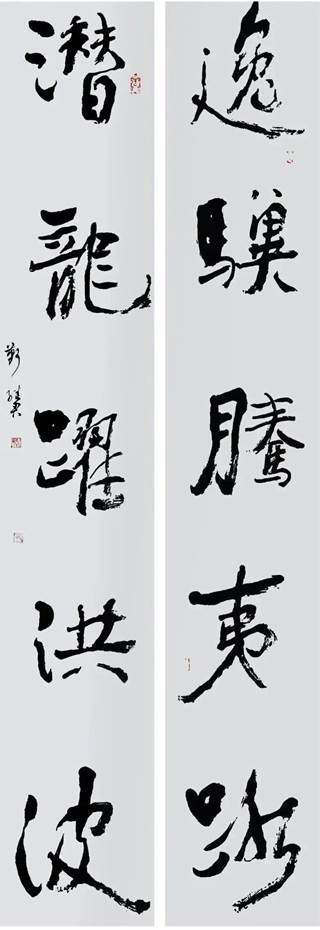 逸驥騰夷路
潛龍躍洪波